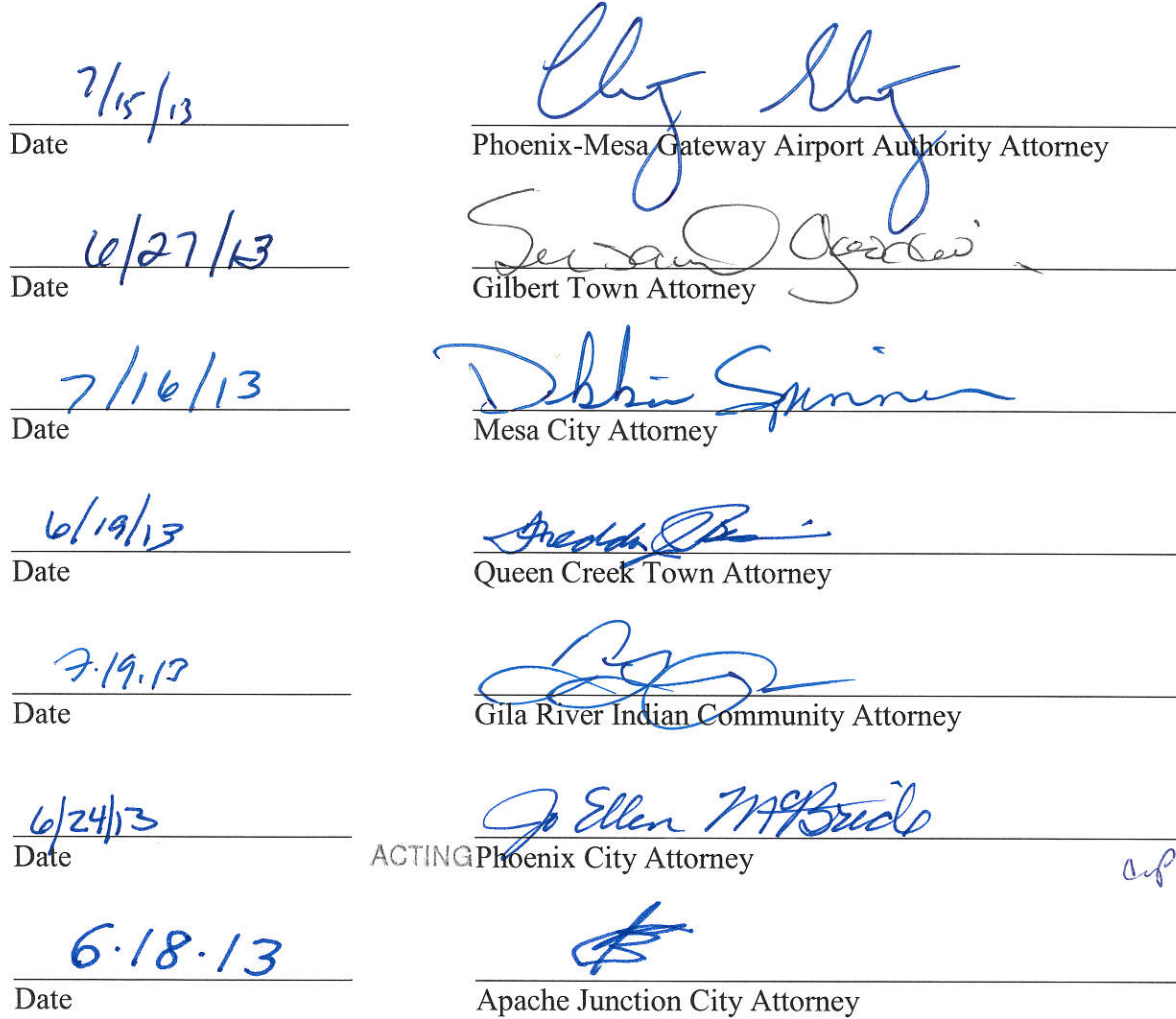 7/15/13
Date Phoenix-Mesa Gateway Airport Authority Attorney
6/27/13
Date Gilbert Town Attorney
7/16/13 Debbie Spinner
Date Mesa City Attorney
6/19/13
Date Queen Creek Town Attorney
7.19.13
Date Gila River Indian Community Attorney
6/24/13 Jo Ellen McBride
Date ACTING Phoenix City Attorney
6.18.13
Date Apache Junction City Attorney